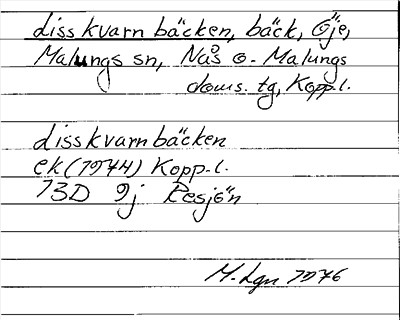 disskvarnbäcken, bäck, Öje,
Malungs sn, Nås o. Malungs
doms. tg, Kopp.l.
disskvarnbäcken
ek (1974) Kopp.l.
13D 9j Resjön
M. Lgn 1976